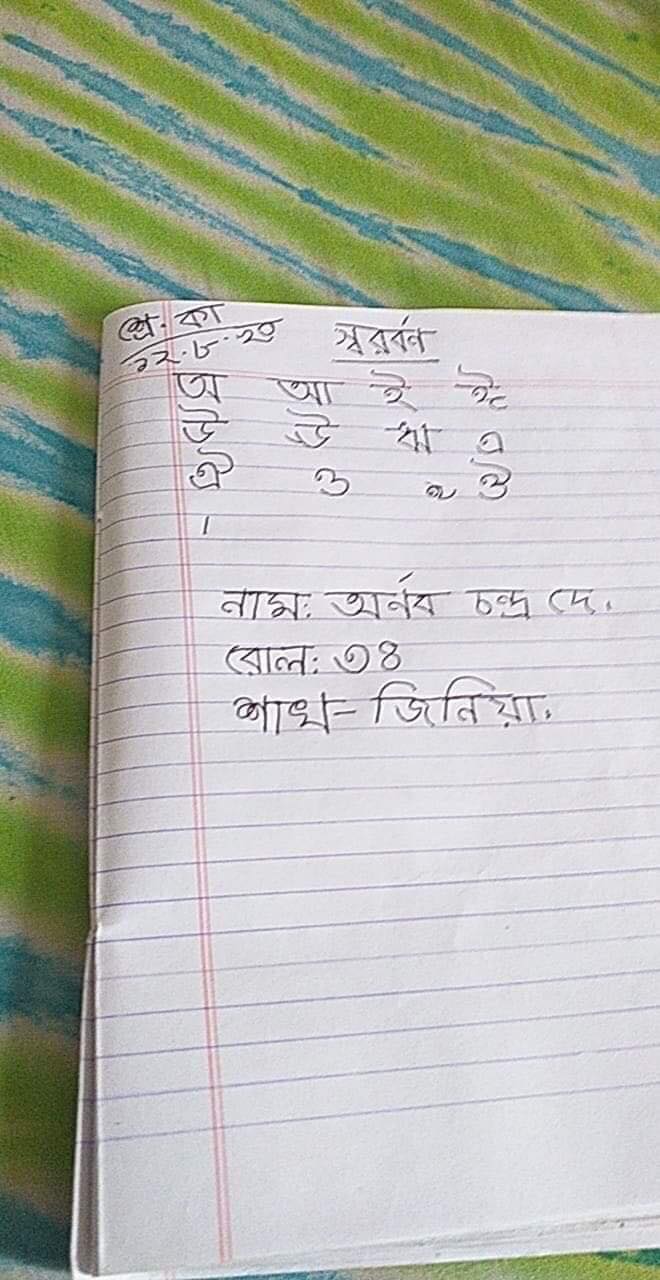 শ্রে. কা
২২.৮.২০
স্বরবর্ন
অ আ ই ঈ
উ ঊ ঋ এ
ঐ ও ঔ
।
নাম: অর্নব চন্দ্র দে.
রোল: ৩৪
শাখা- জিনিয়া.